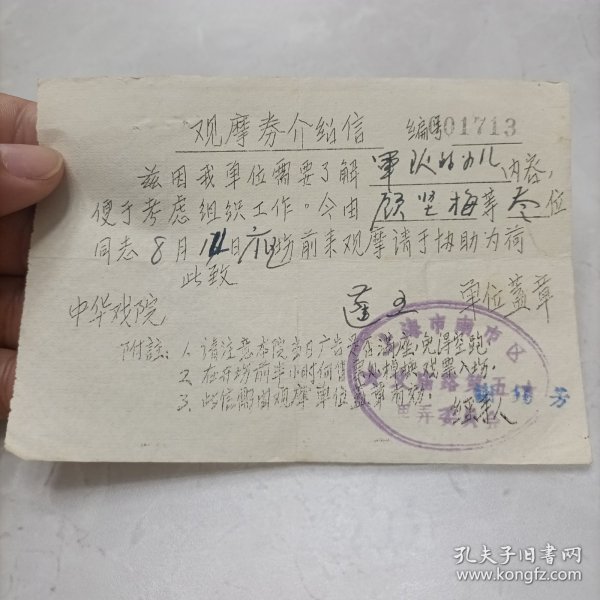 观摩券介绍信 编号001713
兹因我单位需要了解军队的女儿内容,
便于考虑组织工作。今由顾坚梅等叁位
同志8月11日夜场前来观摩请于协助为荷
此致
中华戏院 单位盖章
附註:1、请注意本院当日广告是否满座,免得坐跑
2、在开场前半小时向售票处掉换戏票入场。
3、此信需由观摩单位盖章有效。 经手人
海市南市区
孔夫子旧书网
www.kongfz.com